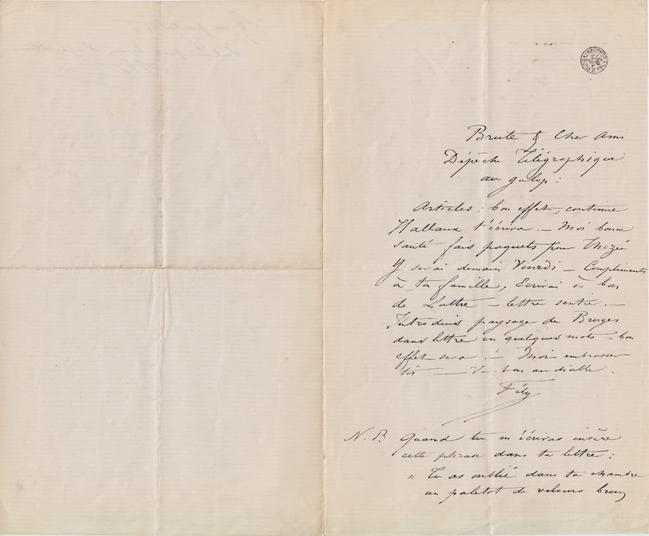 Brute & Cher Ami
Dépêche Télégraphique
au galop :
Articles : bon effet, continue
Hallaux t'écrira. — Moi bonne
santé fais paquets pour Thozée
Y serai demain Vendredi — Compliments
à ta famille, Ecrirai à bas
de Lettre — lettre sentie. —
Introduis paysage de Bruges
dans lettre en quelques mots — bon
effet sera ! — Moi embrasser
toi — Va-t-en au diable.
Fély
N. B Quand tu m'écriras insère
cette phrase dans ta lettre :
"Tu as oublié dans ta chambre
un paletot de velours brun